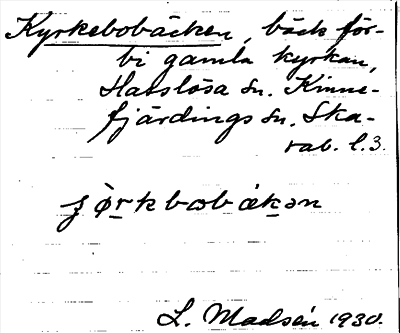 Kyrkebobäcken, bäck för-
bi gamla kyrkan,
Hasslösa sn. Kinne-
fjärdings hd. Ska-
rab. l. 3.
L. Madsén 1930.